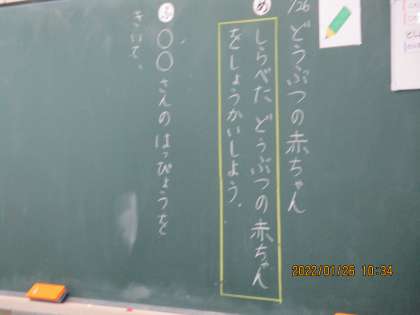 1/26
どうぶつの赤ちゃん
め
しらべた どうぶつの赤ちゃん
をしょうかいしよう。
ふ
○○さんのはっぴょうを
きいて、
2022/01/26 10:34